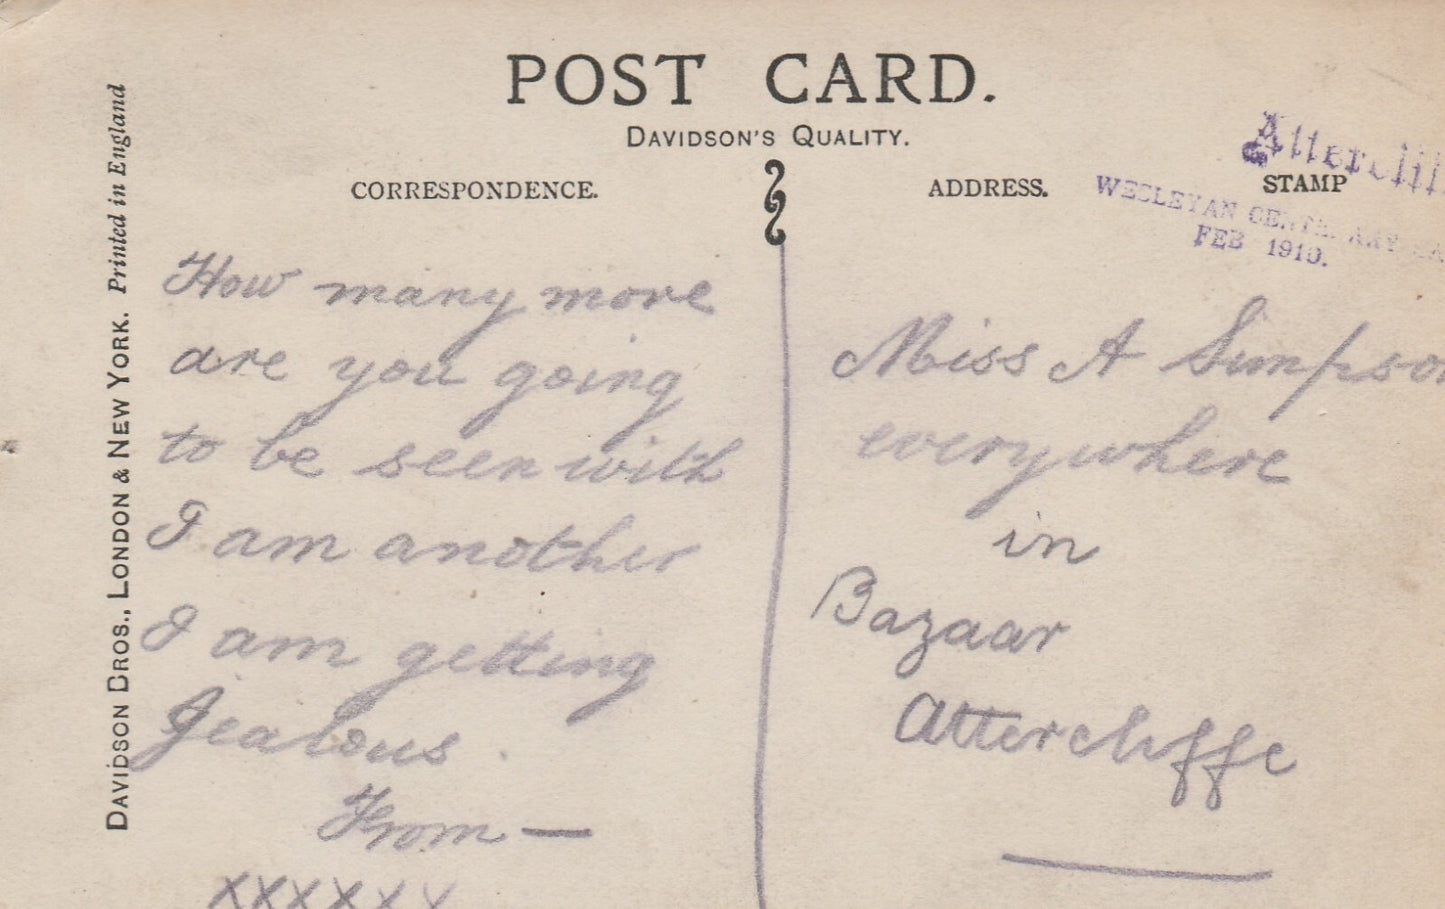 POST CARD.
DAVIDSON'S QUALITY.
CORRESPONDENCE.
ADDRESS.
STAMP
WESLEYAN
FEB 1910.
DAVIDSON BROS., LONDON & NEW YORK. Printed in England
How many more
are you going
to be seen with
I am another
I am getting
Jealous.
From —
xxxxxx
Miss A Simpson
everywhere
in
Bazaar
Attercliffe